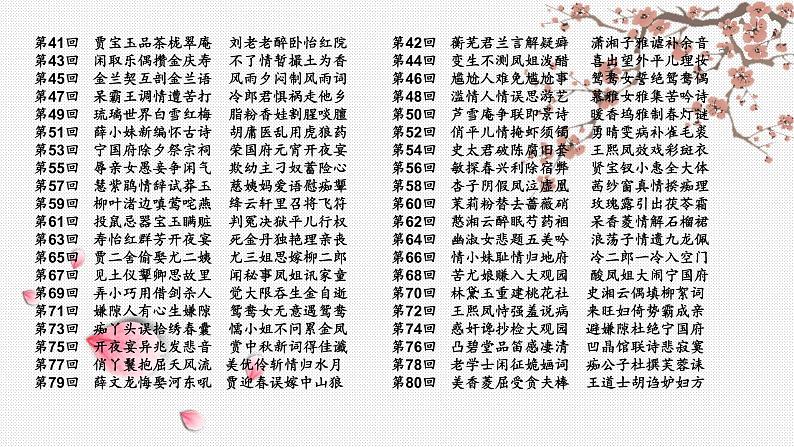 第41回 贾宝玉品茶栊翠庵 刘老老醉卧怡红院 第42回 蘅芜君兰言解疑癖 潇湘子雅谑补余音
第43回 闲取乐偶攒金庆寿 不了情暂撮土为香 第44回 变生不测凤姐泼醋 喜出望外平儿理妆
第45回 金兰契互剖金兰语 风雨夕闷制风雨词 第46回 尴尬人难免尴尬事 鸳鸯女誓绝鸳鸯偶
第47回 呆霸王调情遭苦打 冷郎君惧祸走他乡 第48回 滥情人情误思游艺 慕雅女雅集苦吟诗
第49回 琉璃世界白雪红梅 脂粉香娃割腥啖膻 第50回 芦雪庵争联即景诗 暖香坞雅制春灯谜
第51回 薛小妹新编怀古诗 胡庸医乱用虎狼药 第52回 俏平儿情掩虾须镯 勇晴雯病补雀毛裘
第53回 宁国府除夕祭宗祠 荣国府元宵开夜宴 第54回 史太君破陈腐旧套 王熙凤效戏彩斑衣
第55回 辱亲女愚妾争闲气 欺幼主刁奴蓄险心 第56回 敏探春兴利除宿弊 贤宝钗小惠全大体
第57回 慧紫鹃情辞试莽玉 慈姨妈爱语慰痴颦 第58回 杏子阴假凤泣虚凰 茜纱窗真情揆痴理
第59回 柳叶渚边嗔莺咤燕 绛云轩里召将飞符 第60回 茉莉粉替去蔷薇硝 玫瑰露引出茯苓霜
第61回 投鼠忌器宝玉瞒赃 判冤决狱平儿行权 第62回 憨湘云醉眠芍药裀 呆香菱情解石榴裙
第63回 寿怡红群芳开夜宴 死金丹独艳理亲丧 第64回 幽淑女悲题五美吟 浪荡子情遗九龙佩
第65回 贾二舍偷娶尤二姨 尤三姐思嫁柳二郎 第66回 情小妹耻情归地府 冷二郎一冷入空门
第67回 见土仪颦卿思故里 闻秘事凤姐讯家童 第68回 苦尤娘赚入大观园 酸凤姐大闹宁国府
第69回 弄小巧用借剑杀人 觉大限吞生金自逝 第70回 林黛玉重建桃花社 史湘云偶填柳絮词
第71回 嫌隙人有心生嫌隙 鸳鸯女无意遇鸳鸯 第72回 王熙凤恃强羞说病 来旺妇倚势霸成亲
第73回 痴丫头误拾绣春囊 懦小姐不问累金凤 第74回 惑奸谗抄检大观园 避嫌隙杜绝宁国府
第75回 开夜宴异兆发悲音 赏中秋新词得佳谶 第76回 凸碧堂品笛感凄清 凹晶馆联诗悲寂寞
第77回 俏丫鬟抱屈夭风流 美优伶斩情归水月 第78回 老学士闲征姽婳词 痴公子杜撰芙蓉诔
第79回 薛文龙悔娶河东吼 贾迎春误嫁中山狼 第80回 美香菱屈受贪夫棒 王道士胡诌妒妇方